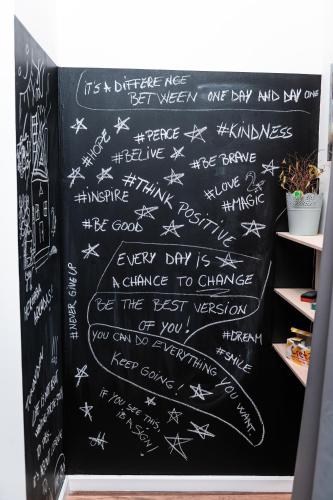 IT'S A DIFFERENCE
BETWEEN ONE DAY AND DAY ONE
#HOPE
#PEACE
#KINDNESS
#BELIVE
#BE BRAVE
#THINK POSITIVE
#INSPIRE
#LOVE
#MAGIC
#BE GOOD
#NEVER GIVE UP
EVERY DAY IS
A CHANCE TO CHANGE
BE THE BEST VERSION
OF YOU!
YOU CAN DO EVERYTHING YOU WANT.
KEEP GOING!
#DREAM
#SMILE
IF YOU SEE THIS,
IS A SIGN!